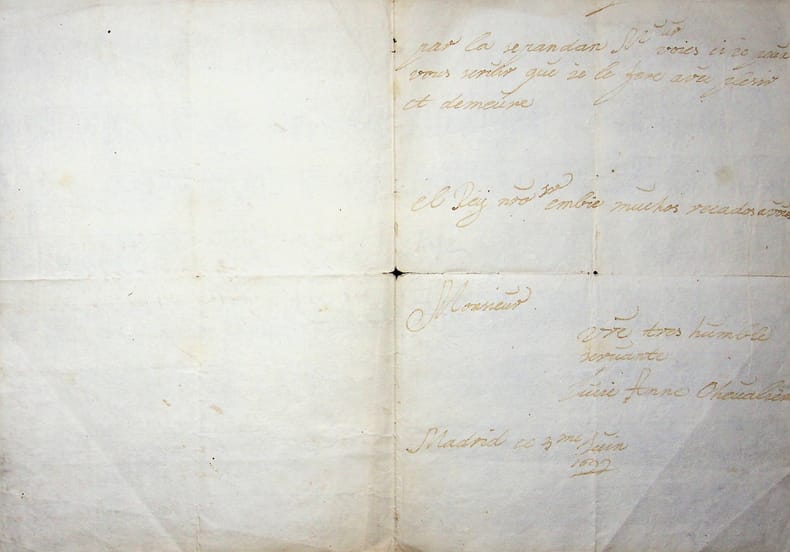 par la sepandan M^eur voies si ie puie
vous seruir que ie le fere avec plesir
et demeure
el Rey nrō s^or embie muchos recados a vōus
Monsieur
vrē tres humble
seruante
Anne Cheualier
Madrid ce 3^me Juin